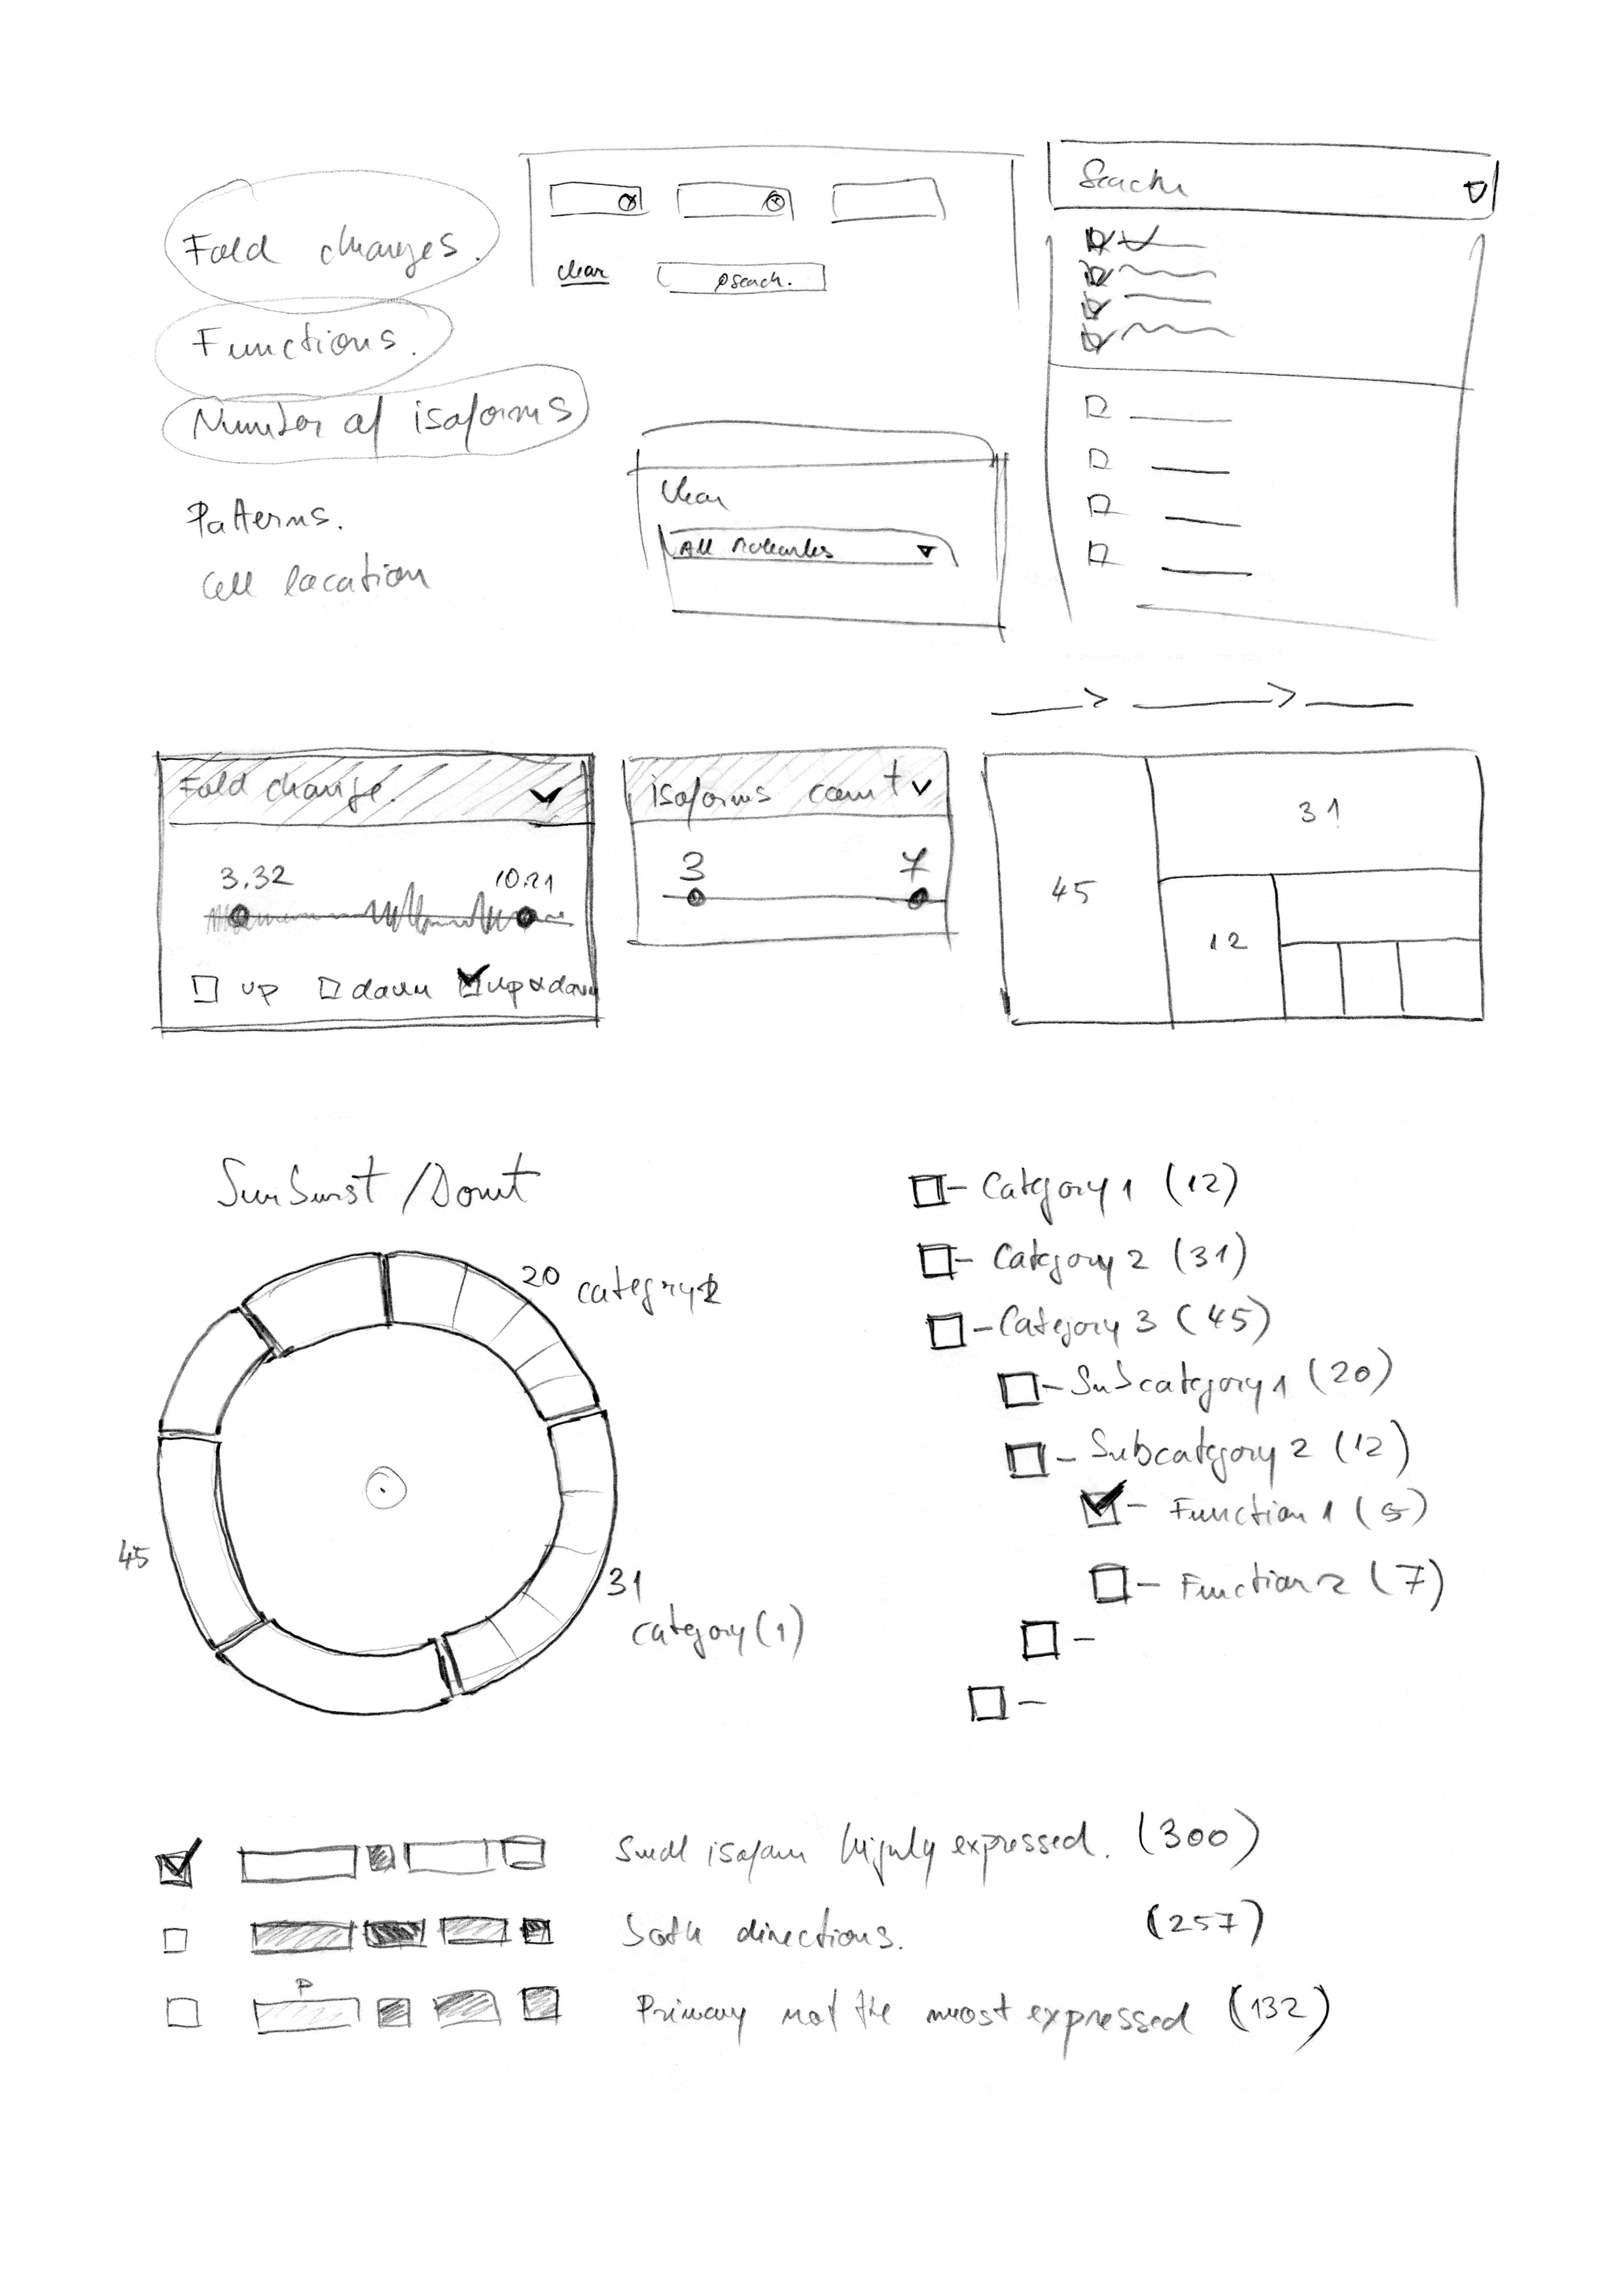 Fold changes.
Functions.
Number of isoforms
Patterns.
Cell location
clear
search.
Search
Clear
All Molecules
Fold change.
3.32
10.21
up
down
up & down
isoforms count
3
7
45
31
12
Sunburst / Donut
20 category 2
45
31
category (1)
Category 1 (12)
Category 2 (31)
Category 3 (45)
Subcategory 1 (20)
Subcategory 2 (12)
Function 1 (5)
Function 2 (7)
Small isoform highly expressed. (300)
both directions. (257)
P
Primary not the most expressed (132)